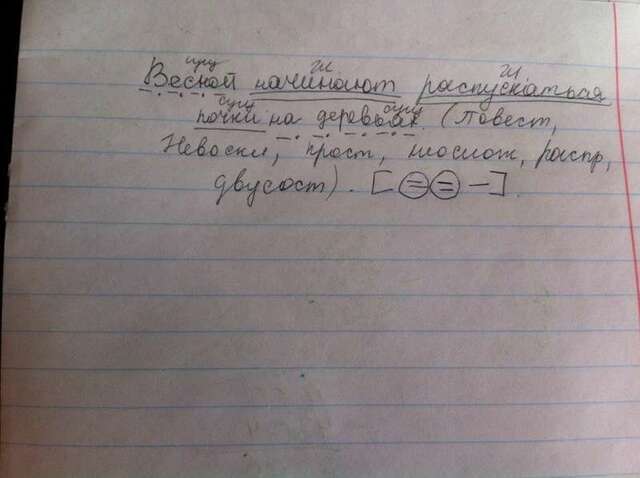 сущ гл гл
Весной начинают распускаться
сущ сущ
почки на деревьях. (Повест,
Невоскл, прост, неослож, распр,
двусост). [== -].